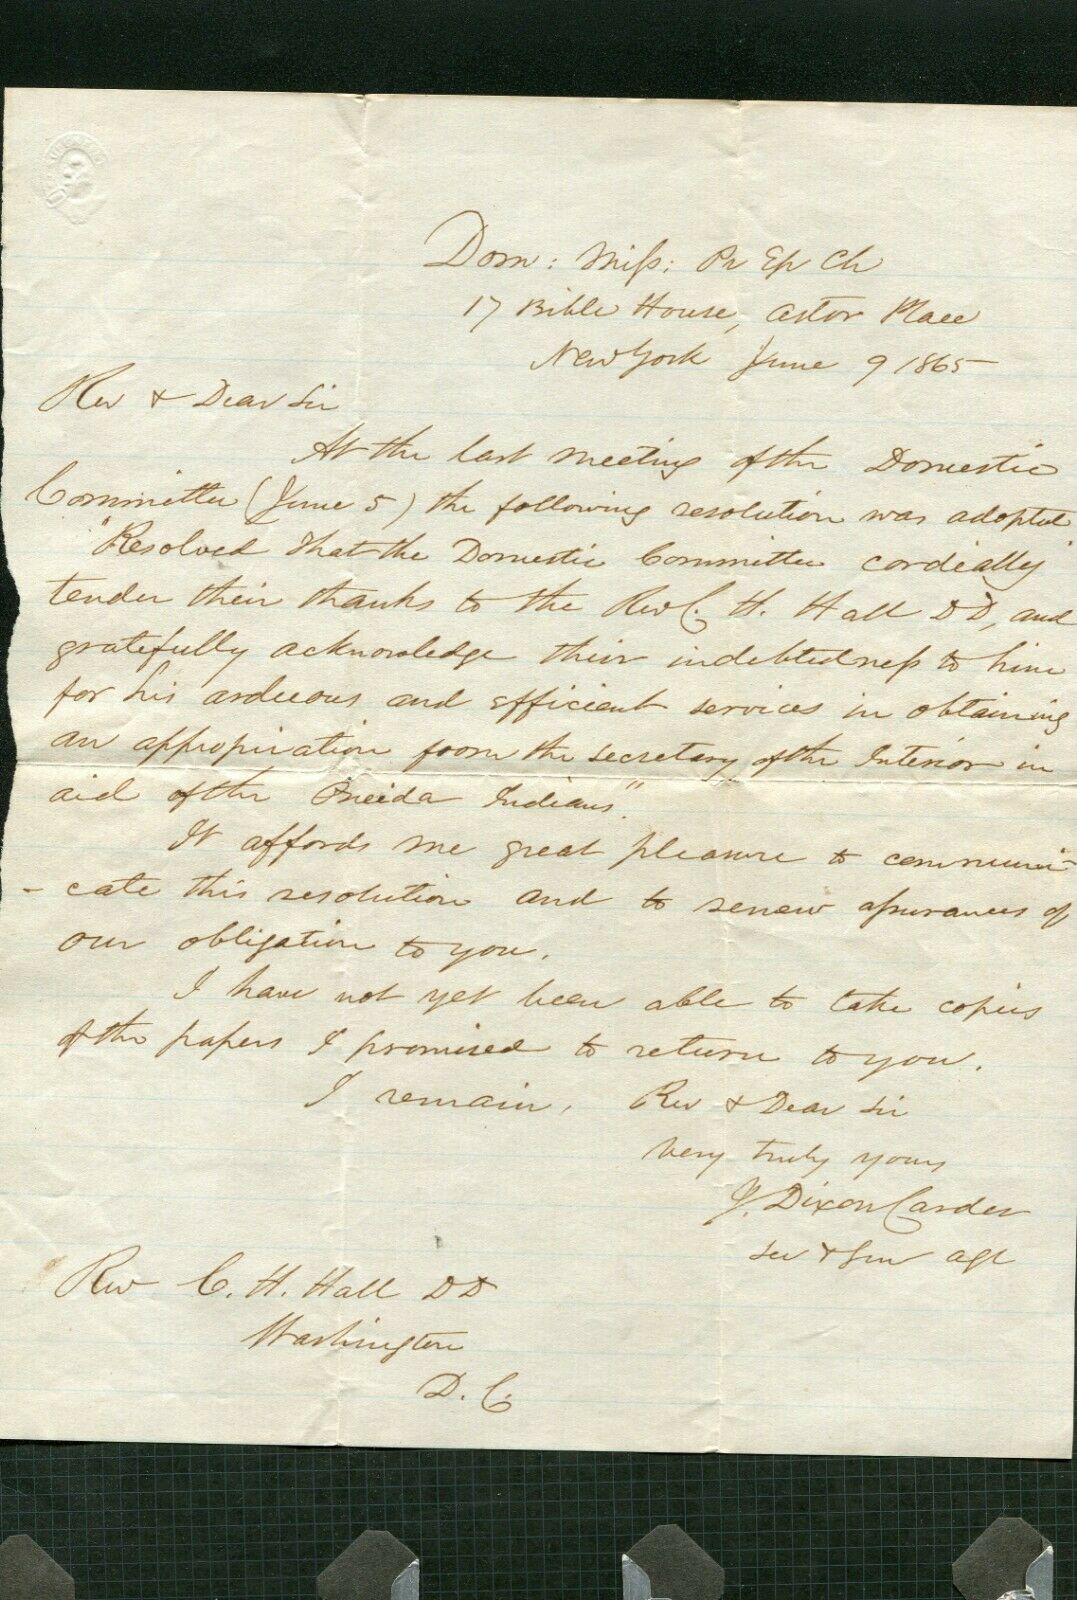 Dom: Miss: Pr Ep Ch
17 Bible House, Astor Place
New York June 9 1865
Rev & Dear Sir
At the last meeting of the Domestic
Committee (June 5) the following resolution was adopted
"Resolved that the Domestic Committee cordially
tender their thanks to the Rev C. H. Hall DD, and
gratefully acknowledge their indebtedness to him
for his arduous and efficient services in obtaining
an appropriation from the Secretary of the Interior in
aid of the Oneida Indians."
It affords me great pleasure to communi-
- cate this resolution and to renew assurances of
our obligation to you.
I have not yet been able to take copies
of the papers I promised to return to you.
I remain, Rev & Dear Sir
very truly yours
J. Dixon Carder
Sec & Gen Agt
Rev C. H. Hall DD
Washington
D. C.